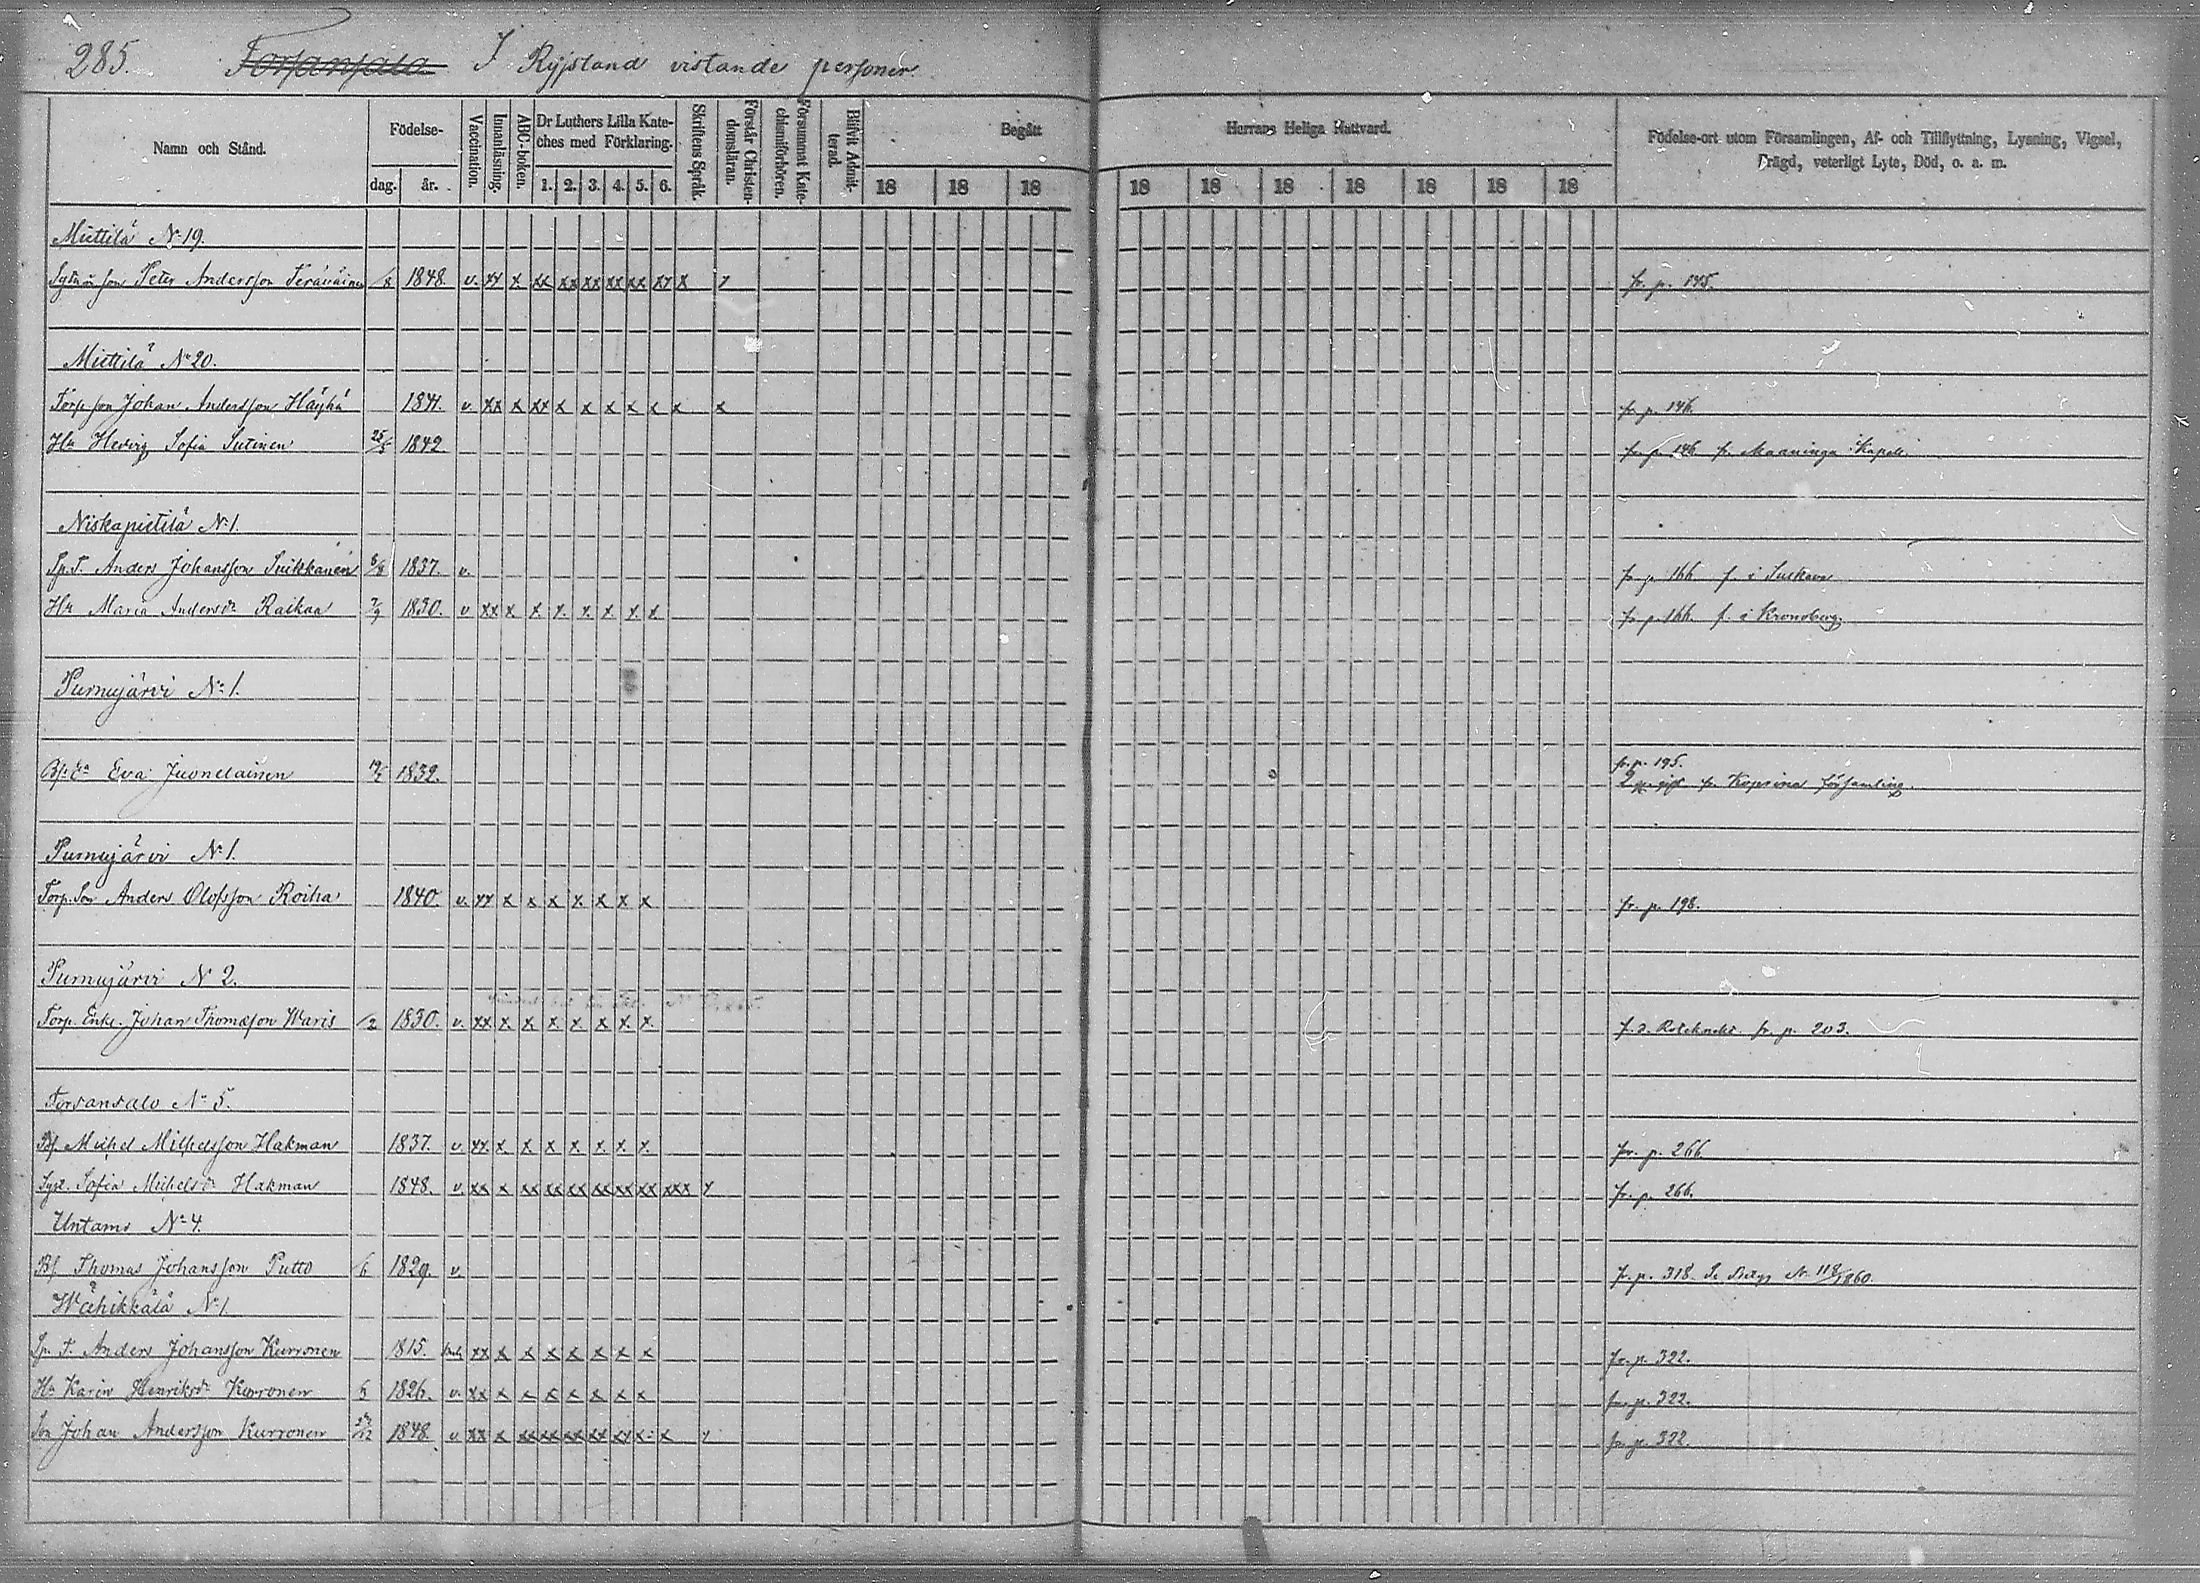 285. Forsansalo I Ryssland vistande personer
Namn och Stånd.
Födelse-
dag. år.
Vaccination.
Innanläsning.
ABC-boken.
Dr Luthers Lilla Kate-
ches med Förklaring.
1. 2. 3. 4. 5. 6.
Skriftens Språk.
Förstår Christen-
domsläran.
Försummat Kate-
chismiförhören.
Blifvit Admit-
terad.
Begått Herrans Heliga Nattvard.
18 18 18 18 18 18 18 18 18 18
Födelse-ort utom Församlingen, Af- och Tillflyttning, Lysning, Vigsel,
Frägd, veterligt Lyte, Död, o. a. m.
Miettilä No 19.
Peter Andersson Teräväinen /8 1848. v. xx x xx xx xx xx xx xx x fr. p. 145.
Miettilä No 20.
Torp. son Johan Andersson Häyhä 1841. v. xx x xx x x x x x x x fr. p. 146.
Hu Hedvig Sofia Sutinen 25/5 1842. fr. p. 146 fr. Maaninga Kapell.
Niskapietilä No 1.
Sp. T. Anders Johansson Suikkanen 8/8 1837. v. fr. p. 166 f. i
Hu Maria Andersdr Raikaa 7/9 1830. v. xx x x x x x x x fr. p. 166. f. i Kronoberg.
Purnujärvi No 1.
Eva Juonelainen 19/5 1832. fr. p. 195.
2 gg. gift fr. Koprina församling.
Purnujärvi No 1.
Torp. Son Anders Olofsson Roiha 1840. v. xx x x x x x x x fr. p. 198.
Purnujärvi No 2.
Torp. Enkl. Johan Thomasson Waris /2 1830. v. xx x x x x x x x fr. p. 203.
Forsansalo No 5.
Bs. Michel Michelsson Hakman 1837. v. xx x x x x x x x fr. p. 266
Syst. Sofia Michelsdr Hakman 1848. v. xx x xx xx xx xx xx xx xxx fr. p. 266.
Untamo No 4.
Bs. Thomas Johansson Putto /6 1829. v. fr. p. 318. Se Betyg No 118/1860.
Wähikkälä No 1.
Sp. T. Anders Johansson Kurronen 1815. xx x x x x x x x fr. p. 322.
Hu Karin Henriksdr Kurronen /6 1826. v. xx x x x x x x x fr. p. 322.
Son Johan Andersson Kurronen /12 1848. v. xx x xx xx xx xx xx x x fr. p. 322.